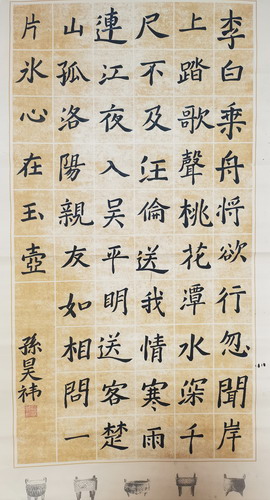 李白乘舟將欲行忽聞岸
上踏歌聲桃花潭水深千
尺不及汪倫送我情寒雨
連江夜入吳平明送客楚
山孤洛陽親友如相問一
片氷心在玉壺
孫昊祎